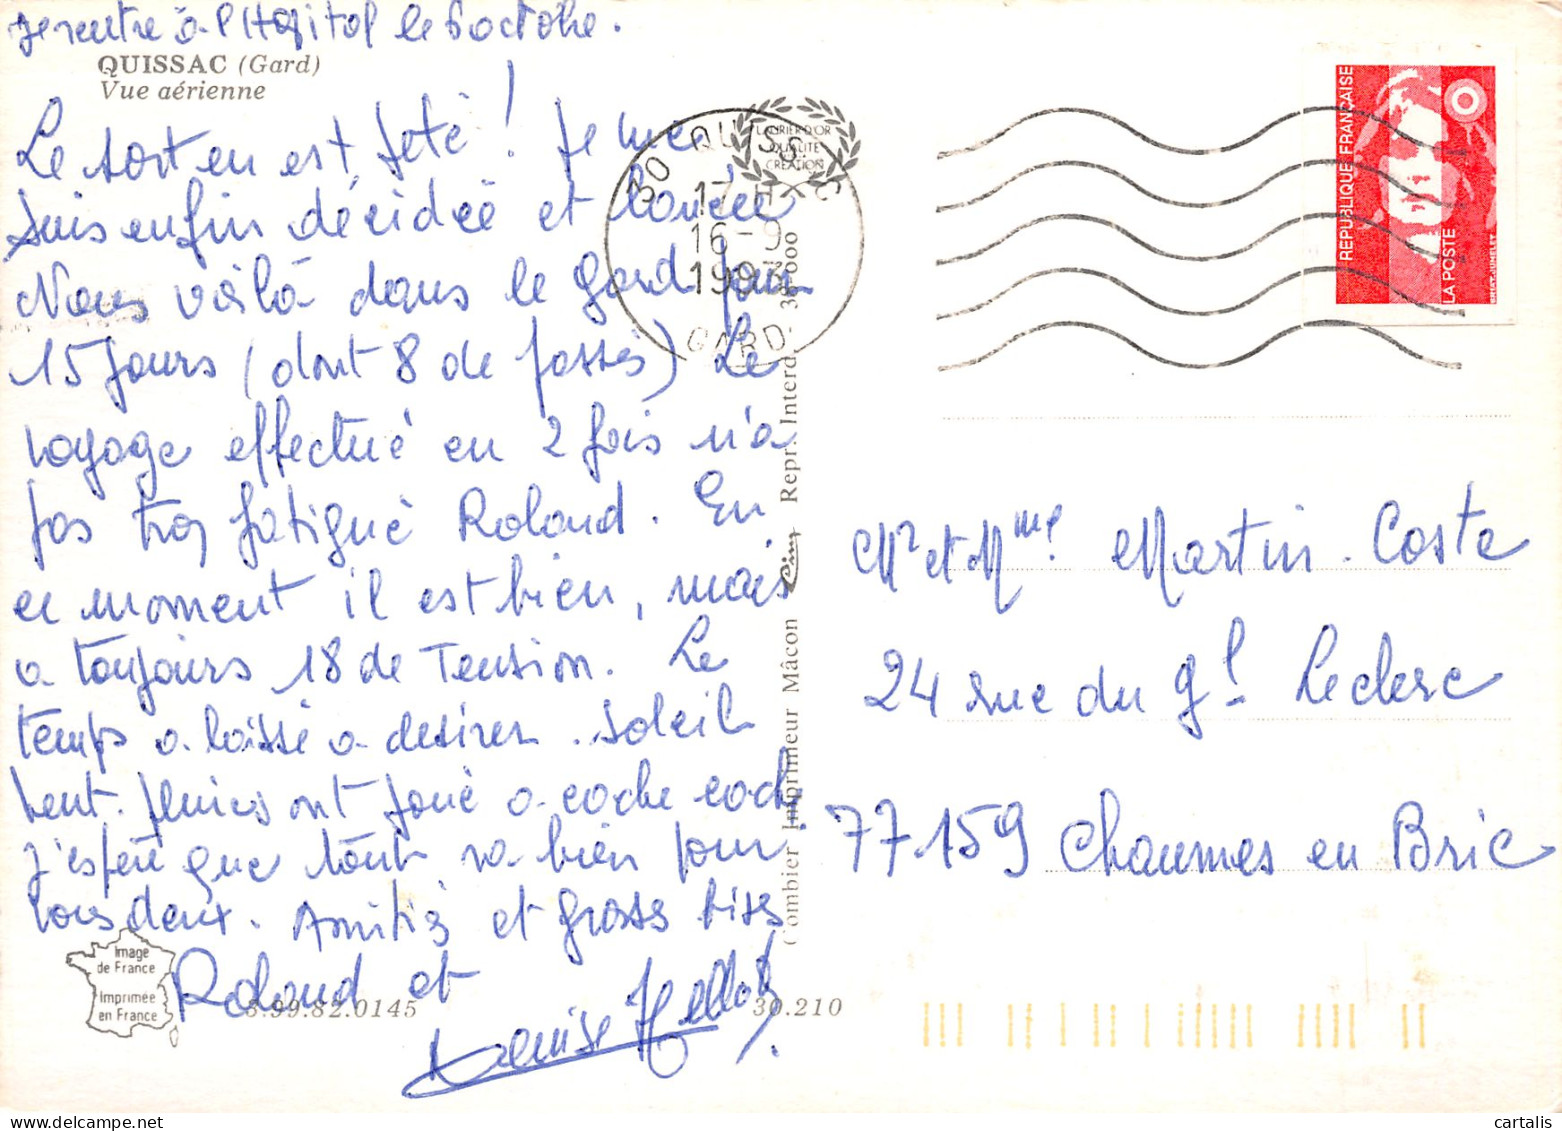 Je rentre à l'Hôpital le 6 octobre.
QUISSAC (Gard)
Vue aérienne
Le sort en est jeté ! Je me
suis enfin décidée et
Nous voilà dans le gard pour
15 jours (dont 8 de passés) Le
voyage effectué en 2 fois n'a
pas trop fatigué Roland. En
ce moment il est bien, mais
a toujours 18 de Tension. Le
temps a laissé a desirer. Soleil
vent. pluies ont joué a cache cache
J'espère que tout va bien pour
vous deux. Amitiés et grosses bises
Roland et
Denise
Image
de France
Imprimée
en France
3.99.82.0145
30.210
Combier Imprimeur Mâcon Cim Repr. Interd. 38.000
LAURIER D'OR
QUALITÉ
CRÉATION
30 QUISSAC
17 H
16-9
1993
GARD
REPUBLIQUE FRANÇAISE
LA POSTE
BRIAT-JUMELET
Mr et Mme Martin. Coste
24 rue du gl Leclerc
77159 Chaumes en Brie
cartalis